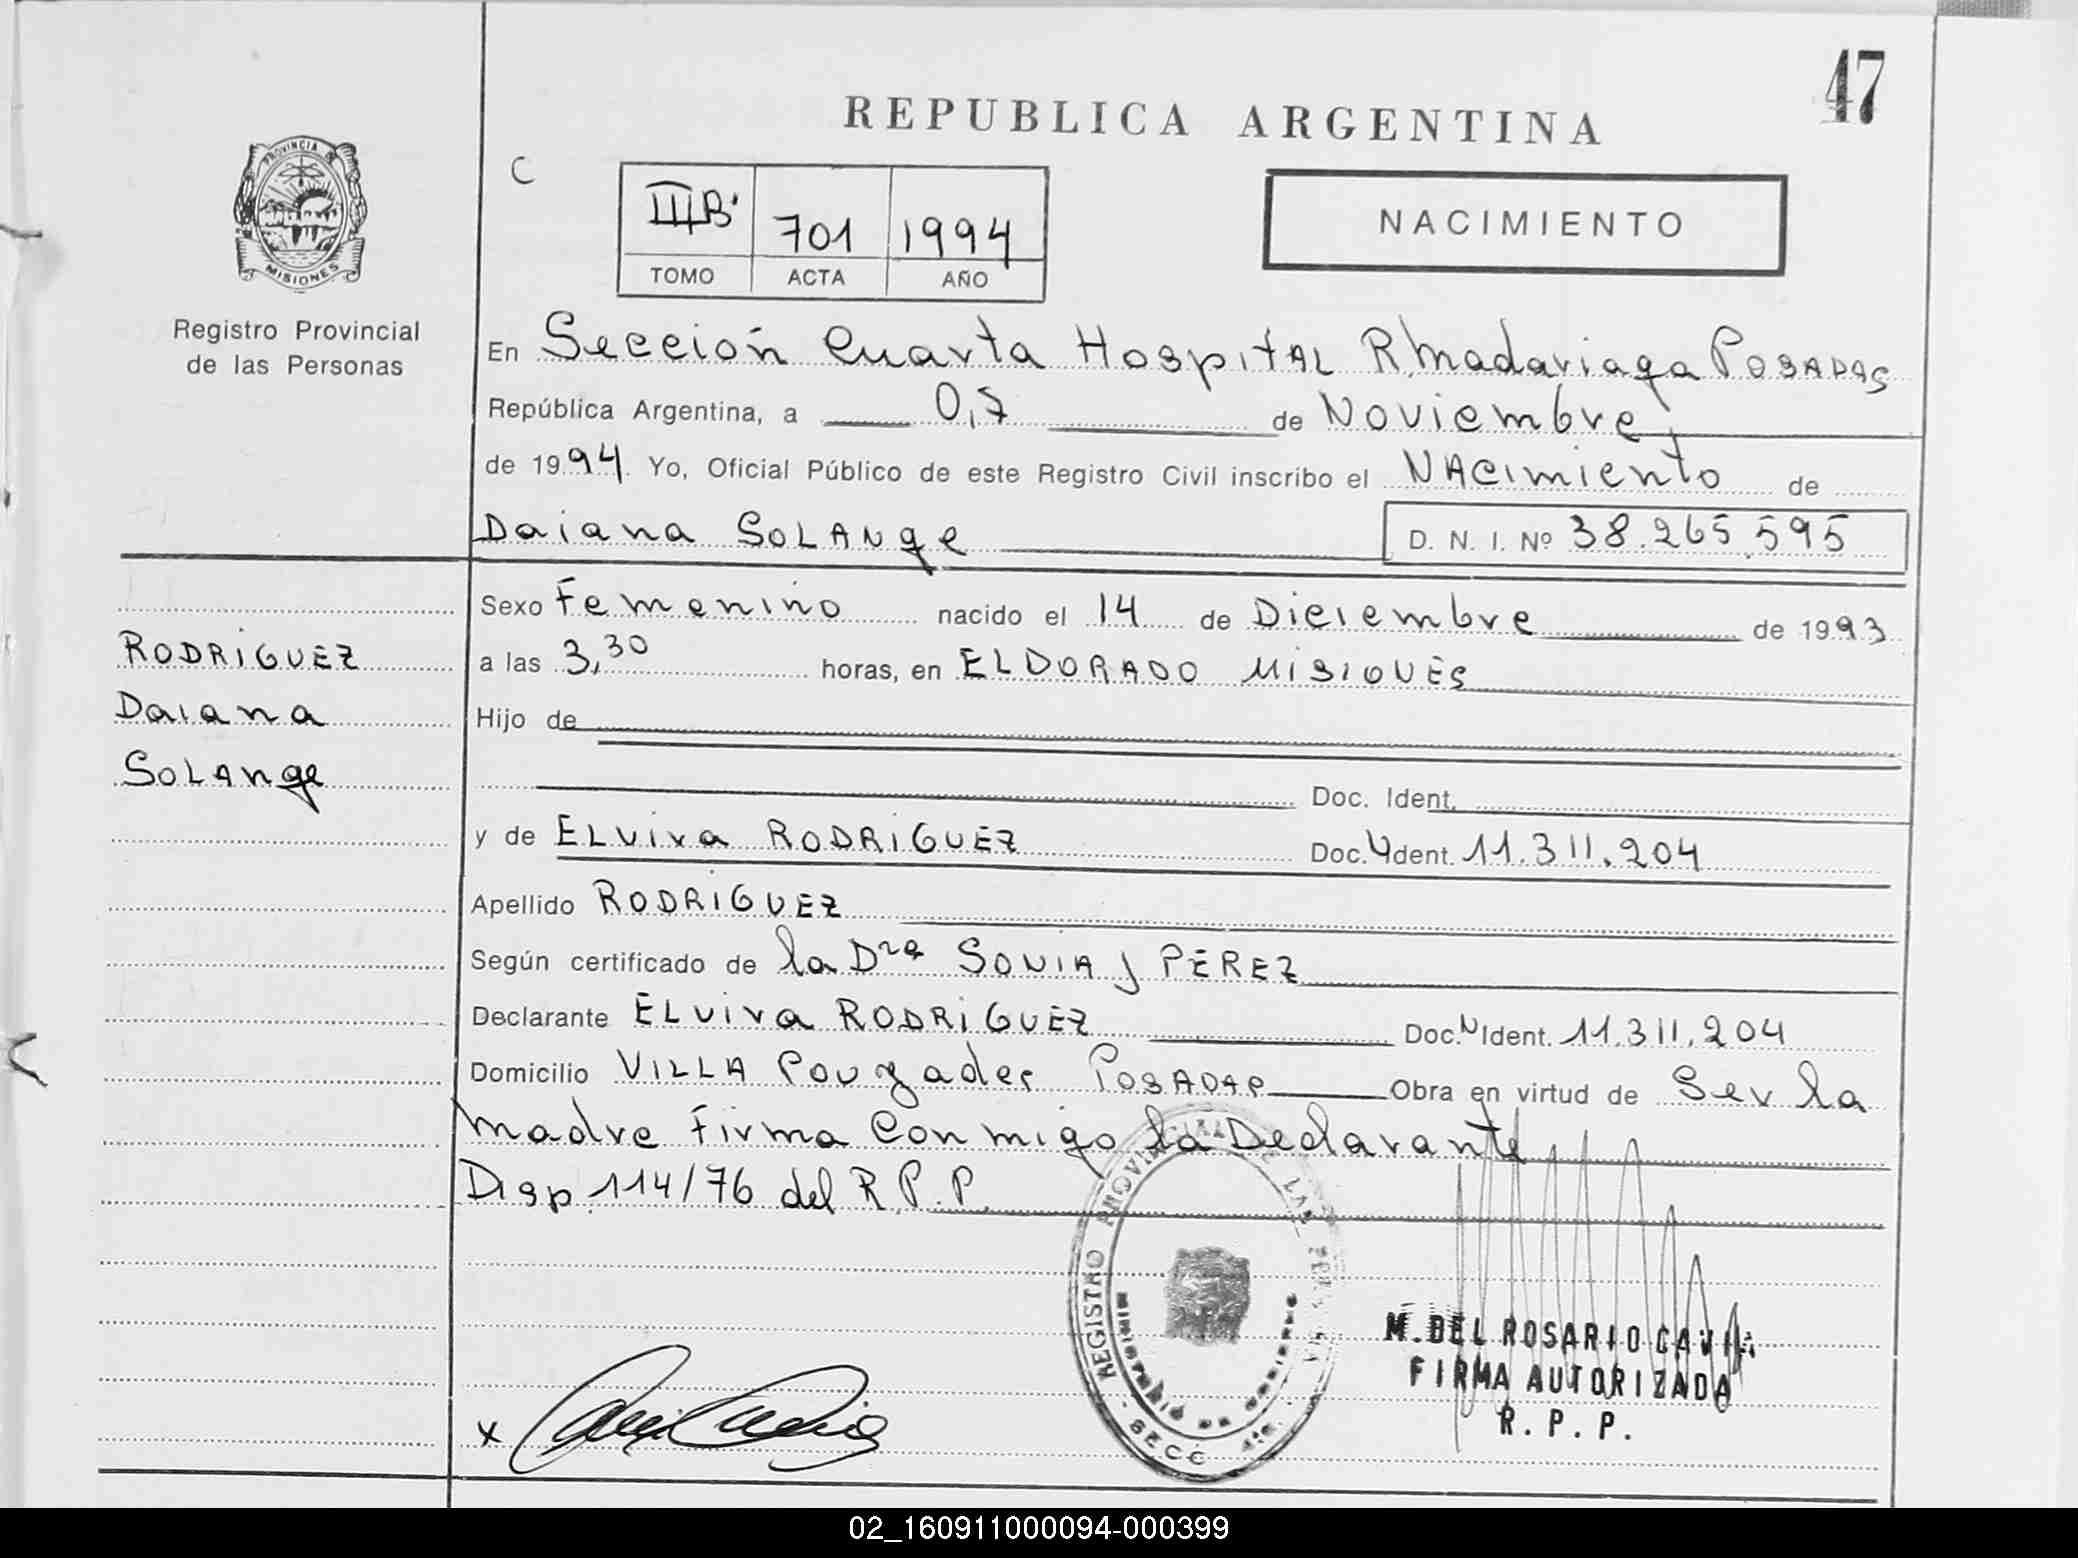 47
REPUBLICA ARGENTINA
PROVINCIA DE
MISIONES
Registro Provincial
de las Personas
C
IIIB' 701 1994
TOMO ACTA AÑO
NACIMIENTO
En Sección Cuarta Hospital R. Madariaga Posadas
República Argentina, a 0,7 de Noviembre
de 1994. Yo, Oficial Público de este Registro Civil inscribo el Nacimiento de
Daiana Solange D. N. I. Nº 38.265.595
RODRIGUEZ
Daiana
Solange
Sexo Femenino nacido el 14 de Diciembre de 1993
a las 3,30 horas, en ELDORADO MISIONES
Hijo de
Doc. Ident.
y de Elvira RODRIGUEZ Doc. Ident. 11.311.204
Apellido RODRIGUEZ
Según certificado de la Dra SONIA J PEREZ
Declarante Elvira RODRIGUEZ Doc. Ident. 11.311.204
Domicilio VILLA Pouyades Posadas Obra en virtud de Ser la
madre Firma Conmigo la Declarante
Disp. 114/76 del R.P.P.
REGISTRO PROVINCIAL DE LAS PERSONAS
MINISTERIO DE GOBIERNO
SECC 4ta.
x
M. DEL ROSARIO
FIRMA AUTORIZADA
R. P. P.
02_160911000094-000399